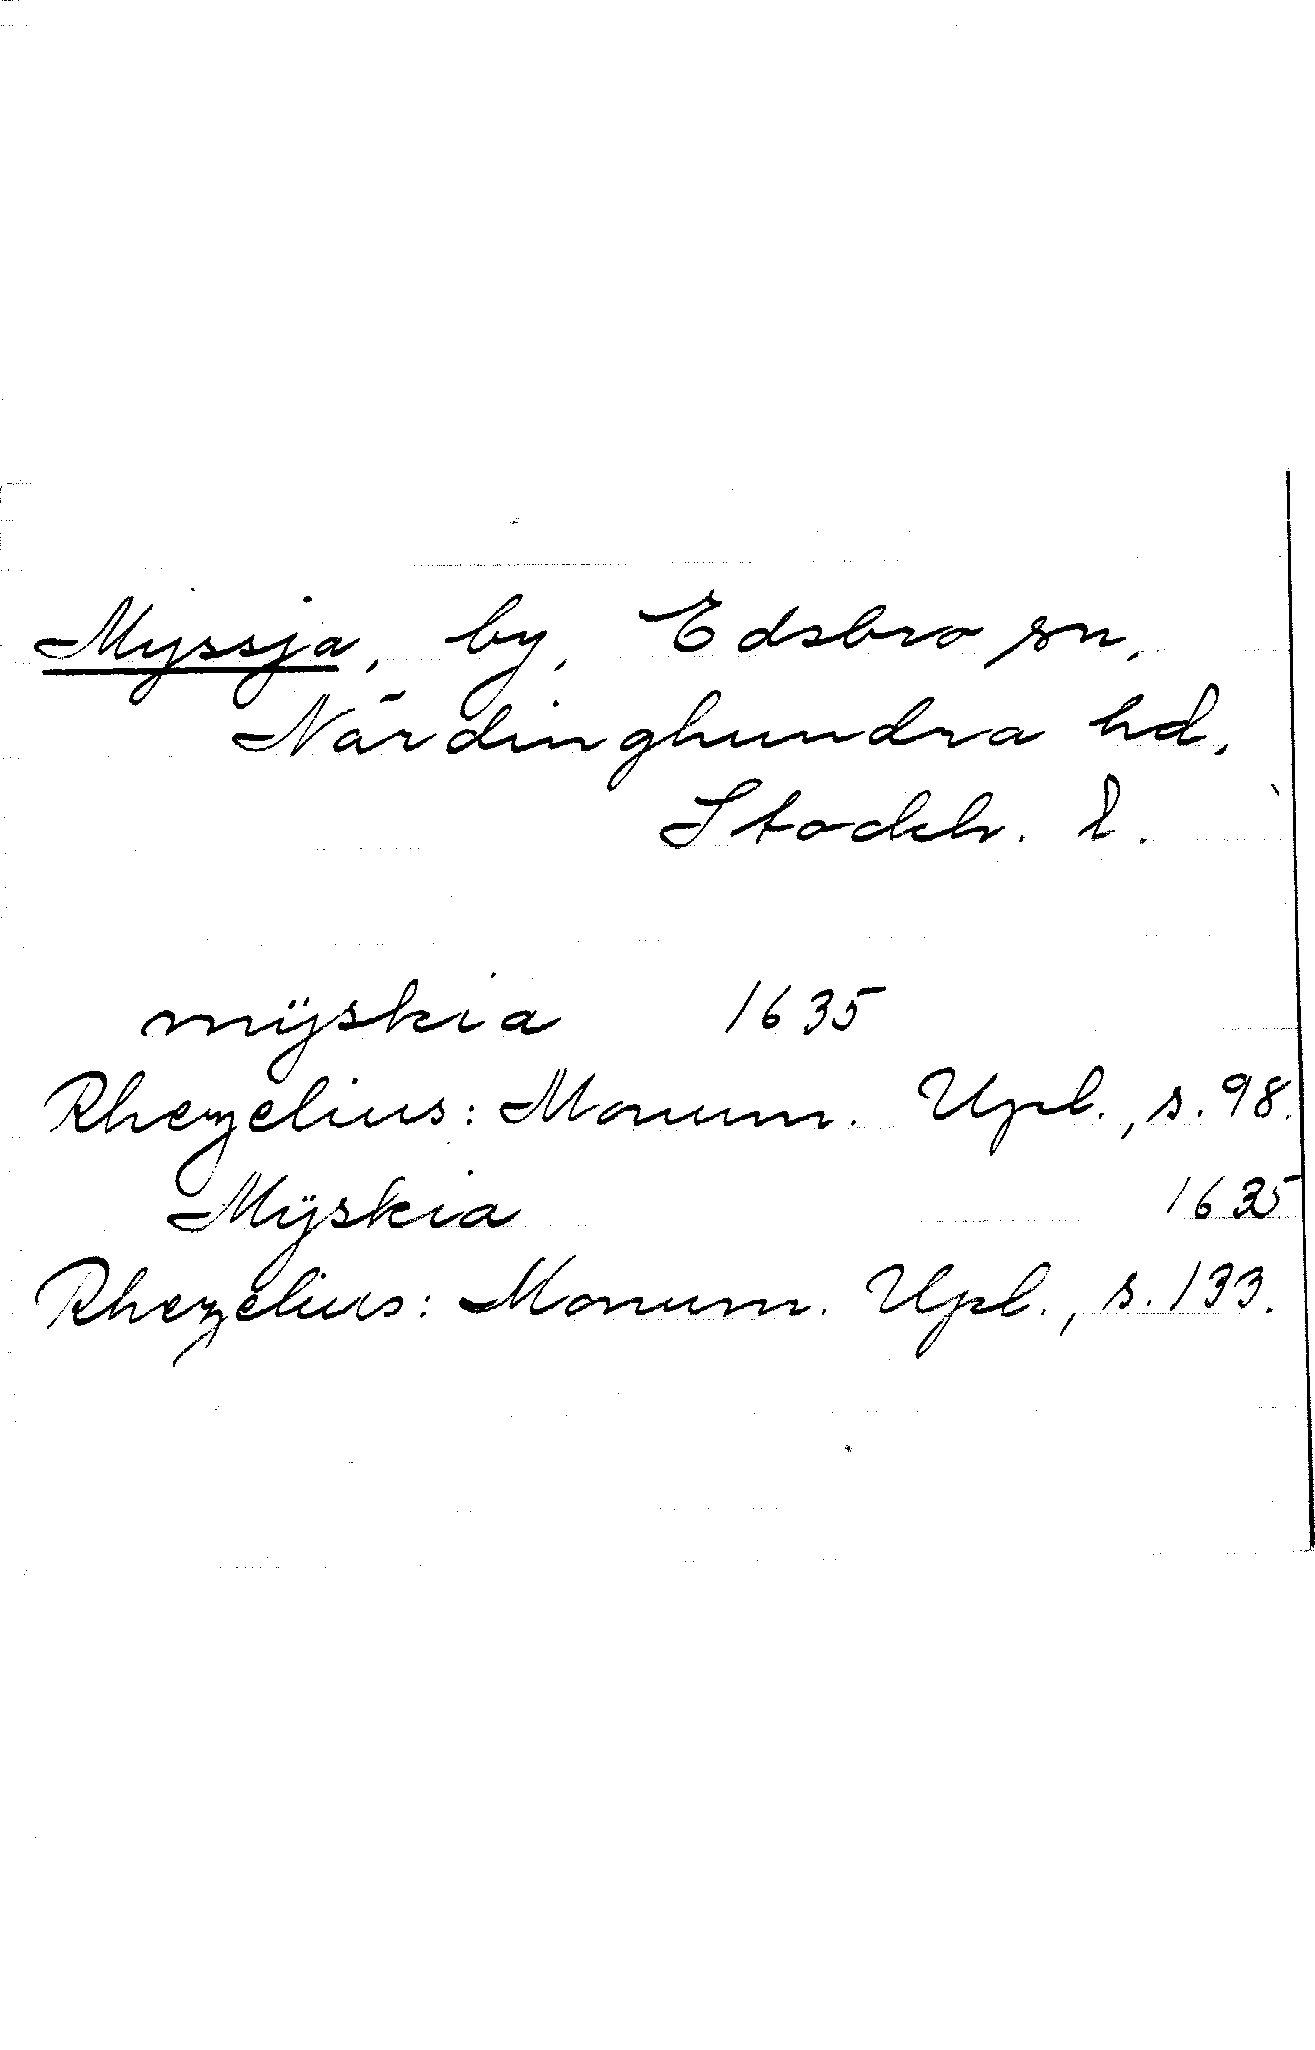 Myssja, by, Edsbro sn,
Närdinghundra hd,
Stockh. l.
mÿskia 1635
Rhezelius: Monum. Upl., s. 98.
Mÿskia 1635
Rhezelius: Monum. Upl., s. 133.